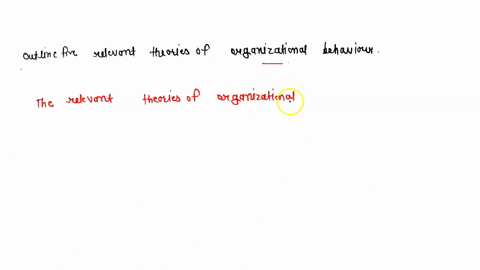 outline five relevant theories of organizational behaviour.
The relevant theories of organizational